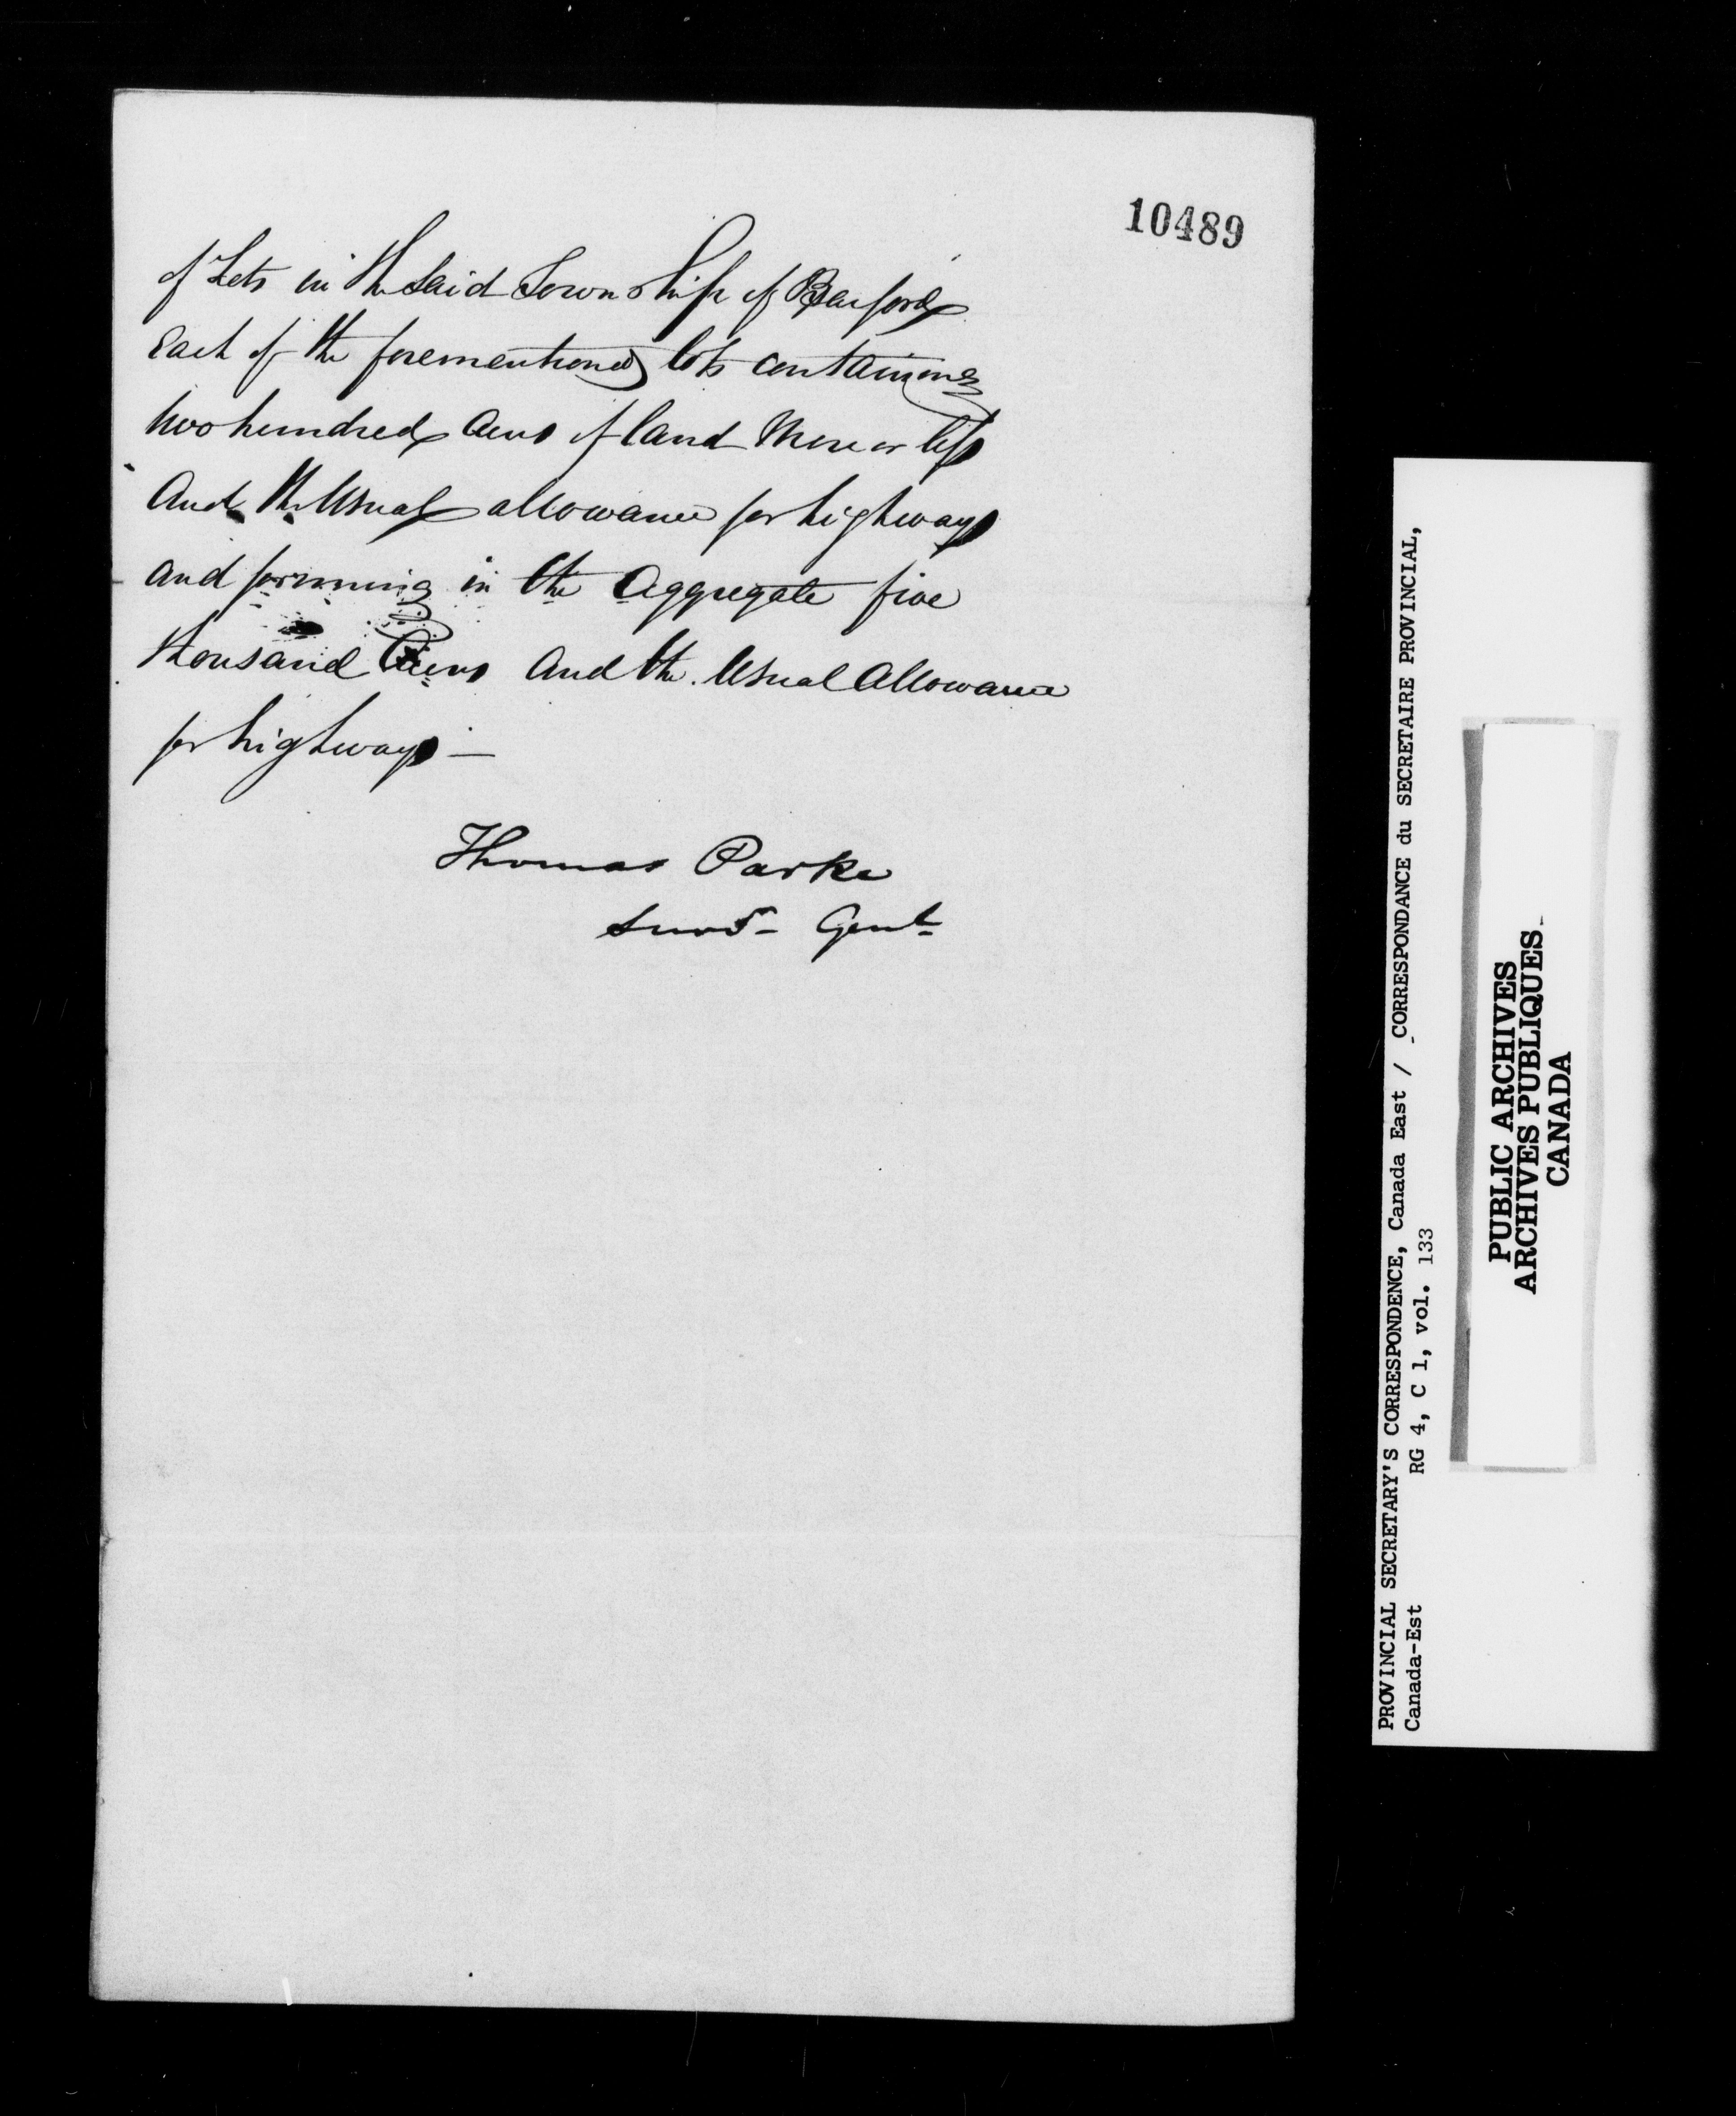 10489
of Lots in the said Township of Barford
Each of the forementioned lots containing
two hundred acres of land More or less
And the Usual allowance for highways
and forming in the Aggregate five
thousand Acres And the Usual Allowance
for highways —
Thomas Parke
Surv.r Genl
PROVINCIAL SECRETARY'S CORRESPONDENCE, Canada East / CORRESPONDANCE du SECRETAIRE PROVINCIAL,
Canada-Est RG 4, C 1, vol. 133
PUBLIC ARCHIVES
ARCHIVES PUBLIQUES
CANADA